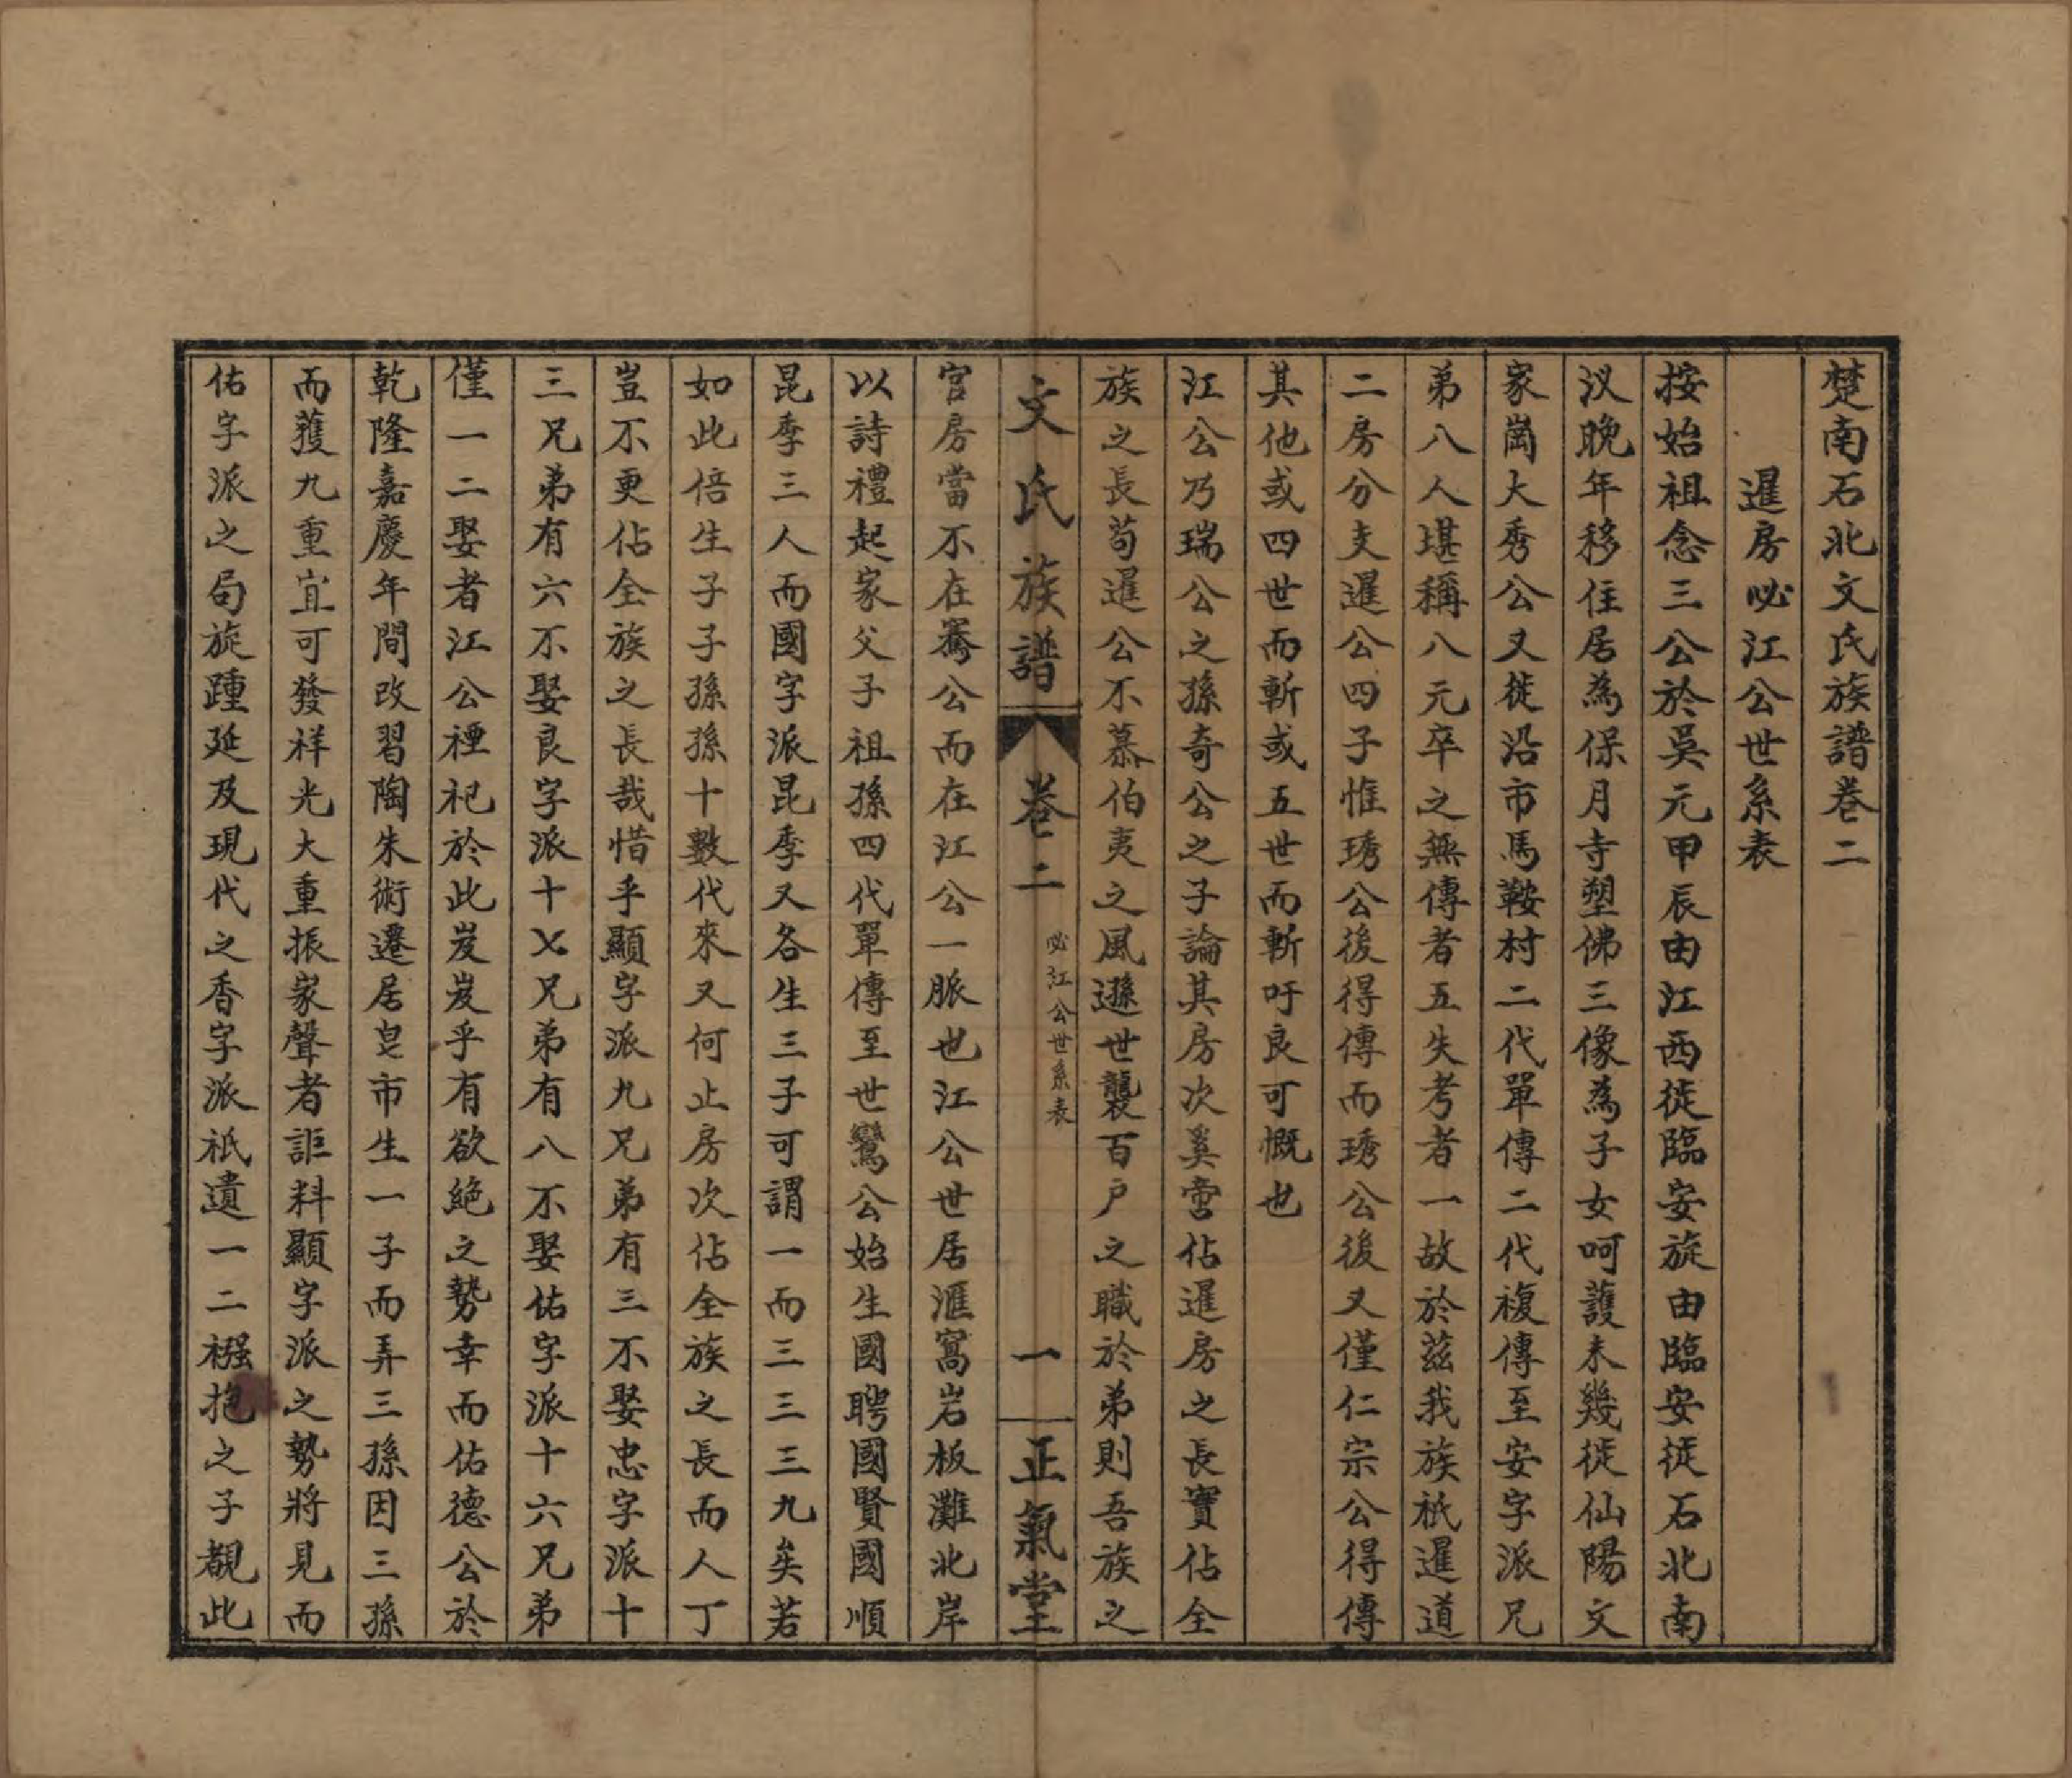 楚南石北文氏族譜卷二
暹房必江公世系表
按始祖念三公於吳元甲辰由江西徙臨安旋由臨安徙石北南
汊晚年移住居為保月寺塑佛三像為子女呵護未幾徙仙陽文
家崗大秀公又徙沿市馬鞍村二代單傳二代複傳至安字派兄
弟八人堪稱八元卒之無傳者五失考者一故於茲我族祇暹道
二房分支暹公四子惟琇公後得傳而琇公後又僅仁宗公得傳
其他或四世而斬或五世而斬吁良可慨也
江公乃瑞公之孫奇公之子論其房次奚啻佔暹房之長實佔全
族之長苟暹公不慕伯夷之風遜世襲百户之職於弟則吾族之
文氏族譜 卷二 必江公世系表 一 正氣堂
宫房當不在騫公而在江公一脈也江公世居滙窩岩板灘北岸
以詩禮起家父子祖孫四代單傳至世鸞公始生國聘國賢國順
昆季三人而國字派昆季又各生三子可謂一而三三三九矣若
如此倍生子子孫孫十數代來又何止房次佔全族之長而人丁
豈不更佔全族之長哉惜乎顯字派九兄弟有三不娶忠字派十
三兄弟有六不娶良字派十乂兄弟有八不娶佑字派十六兄弟
僅一二娶者江公禋祀於此岌岌乎有欲絕之勢幸而佑德公於
乾隆嘉慶年間改習陶朱術遷居皂市生一子而弄三孫因三孫
而獲九重宜可發祥光大重振家聲者詎料顯字派之勢將見而
佑字派之局旋踵延及現代之香字派祇遺一二襁抱之子覩此